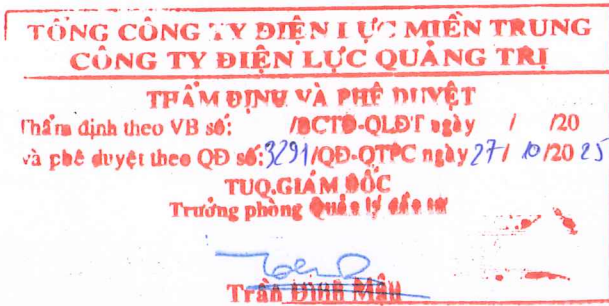 TỔNG CÔNG TY ĐIỆN LỰC MIỀN TRUNG
CÔNG TY ĐIỆN LỰC QUẢNG TRỊ
THẨM ĐỊNH VÀ PHÊ DUYỆT
Thẩm định theo VB số: /BCTĐ-QLĐT ngày / /20
và phê duyệt theo QĐ số: 3291/QĐ-QTPC ngày 27/ 10/20 25
TUQ.GIÁM ĐỐC
Trưởng phòng Quản lý đầu tư
Trần Đình Mậu